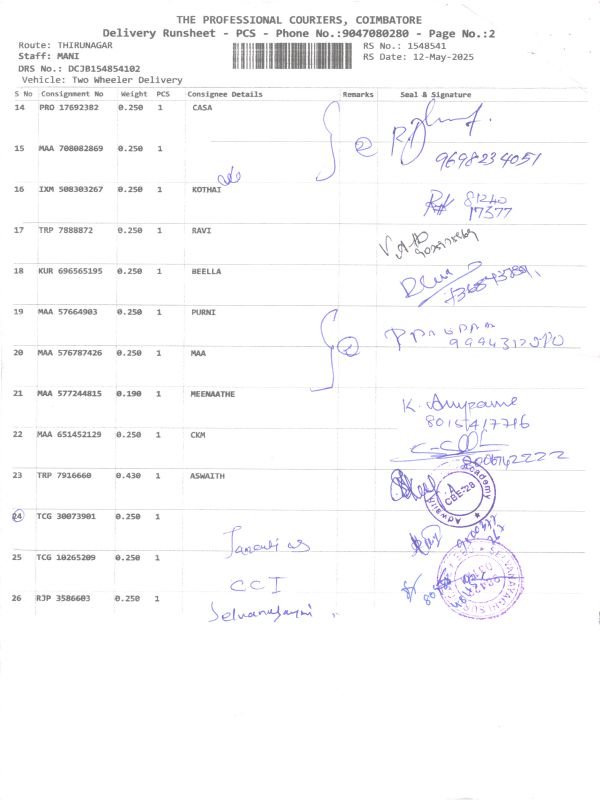 THE PROFESSIONAL COURIERS, COIMBATORE
Delivery Runsheet - PCS - Phone No.:9047080280 - Page No.:2
Route: THIRUNAGAR RS No.: 1548541
Staff: MANI RS Date: 12-May-2025
DRS No.: DCJB154854102
Vehicle: Two Wheeler Delivery
S No Consignment No Weight PCS Consignee Details Remarks Seal & Signature
14 PRO 17692382 0.250 1 CASA
2
15 MAA 708082869 0.250 1 9698234051
16 IXM 508303267 0.250 1 KOTHAI 81240
17377
17 TRP 7888872 0.250 1 RAVI
18 KUR 696565195 0.250 1 BEELLA
19 MAA 57664903 0.250 1 PURNI
2
20 MAA 576787426 0.250 1 MAA
21 MAA 577244815 0.190 1 MEENAATHE K. Anypame
8015417716
22 MAA 651452129 0.250 1 CKM
23 TRP 7916660 0.430 1 ASWAITH
Academy CBE-28
24 TCG 30073901 0.250 1
25 TCG 10265209 0.250 1
CCI
26 RJP 3586603 0.250 1